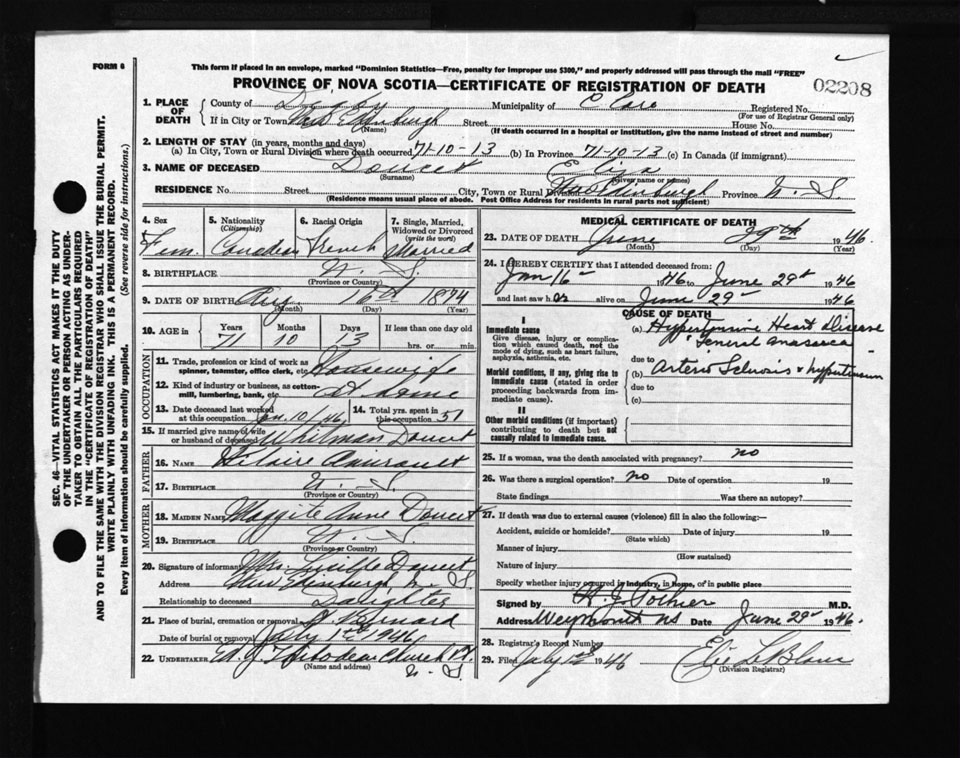 FORM 6
This form if placed in an envelope, marked "Dominion Statistics—Free, penalty for improper use $300," and properly addressed will pass through the mail "FREE"
PROVINCE OF NOVA SCOTIA—CERTIFICATE OF REGISTRATION OF DEATH
02208
1. PLACE OF DEATH
County of Digby Municipality of Clare Registered No.
(For use of Registrar General only)
If in City or Town New Edinburgh Street House No.
(Name) (If death occurred in a hospital or institution, give the name instead of street and number)
2. LENGTH OF STAY (in years, months and days)
(a) In City, Town or Rural Division where death occurred 71-10-13 (b) In Province 71-10-13 (c) In Canada (if immigrant)
3. NAME OF DECEASED Doucet
(Surname) (Given name or names)
RESIDENCE No. Street City, Town or Rural Division New Edinburgh Province N. S.
(Residence means usual place of abode. Post Office Address for residents in rural parts not sufficient)
4. Sex Fem.
5. Nationality (Citizenship) Canadian
6. Racial Origin French
7. Single, Married, Widowed or Divorced (write the word) Married
8. BIRTHPLACE N. S.
(Province or Country)
9. DATE OF BIRTH Aug 16 1874
(Month) (Day) (Year)
10. AGE in Years Months Days If less than one day old
71 10 13 hrs. or min.
OCCUPATION
11. Trade, profession or kind of work as spinner, teamster, office clerk, etc. Housewife
12. Kind of industry or business, as cotton-mill, lumbering, bank, etc. At home
13. Date deceased last worked at this occupation Jan. 10/46
14. Total yrs. spent in this occupation 51
15. If married give name of wife or husband of deceased Whitman Doucet
FATHER
16. NAME Hilaire Amirault
17. BIRTHPLACE N. S.
(Province or Country)
MOTHER
18. MAIDEN NAME Maggite Anne Doucet
19. BIRTHPLACE N. S.
(Province or Country)
20. Signature of informant Mrs. Lucille Doucet
Address New Edinburgh N. S.
Relationship to deceased Daughter
21. Place of burial, cremation or removal St. Bernard
Date of burial or removal July 1st 1946
22. UNDERTAKER Church Pt.
N. S.
(Name and address)
MEDICAL CERTIFICATE OF DEATH
23. DATE OF DEATH June 29th 1946.
(Month) (Day)
24. I HEREBY CERTIFY that I attended deceased from:
Jan 16 1946 to June 29th 1946
and last saw her alive on June 29th 1946
CAUSE OF DEATH
I
Immediate cause
Give disease, injury or complication which caused death, not the mode of dying, such as heart failure, asphyxia, asthenia, etc.
(a) Hypertensive Heart Disease
General anasarca
due to
Morbid conditions, if any, giving rise to immediate cause (stated in order proceeding backwards from immediate cause).
(b) Arterio Sclerosis & hypertension
due to
(c)
II
Other morbid conditions (if important) contributing to death but not causally related to immediate cause.
25. If a woman, was the death associated with pregnancy? no
26. Was there a surgical operation? no Date of operation 19
State findings Was there an autopsy?
27. If death was due to external causes (violence) fill in also the following:—
Accident, suicide or homicide? Date of injury 19
(State which)
Manner of injury
(How sustained)
Nature of injury
Specify whether injury occurred in industry, in home, or in public place
Signed by H. J. Pothier M.D.
Address Weymouth NS Date June 29th 1946.
28. Registrar's Record Number
29. Filed July 1946 Elie LeBlanc
(Division Registrar)
SEC. 46—VITAL STATISTICS ACT MAKES IT THE DUTY
OF THE UNDERTAKER OR PERSON ACTING AS UNDER-
TAKER TO OBTAIN ALL THE PARTICULARS REQUIRED
IN THE "CERTIFICATE OF REGISTRATION OF DEATH"
AND TO FILE THE SAME WITH THE DIVISION REGISTRAR WHO SHALL ISSUE THE BURIAL PERMIT.
WRITE PLAINLY WITH UNFADING INK. THIS IS A PERMANENT RECORD.
Every item of information should be carefully supplied. (See reverse side for instructions.)